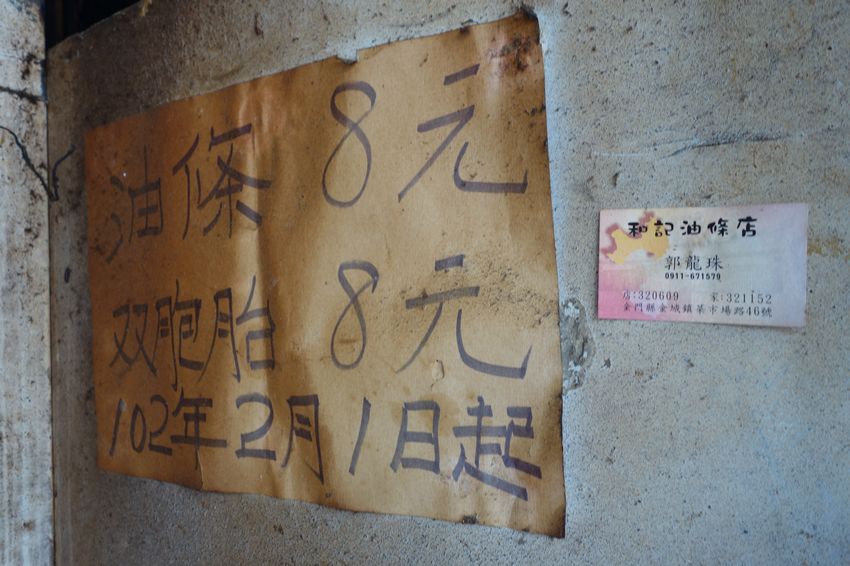 油條 8元
双胞胎 8元
102年2月1日起
和記油條店
郭龍珠
0911-671579
店:320609 家:321152
金門縣金城鎮菜市場路46號